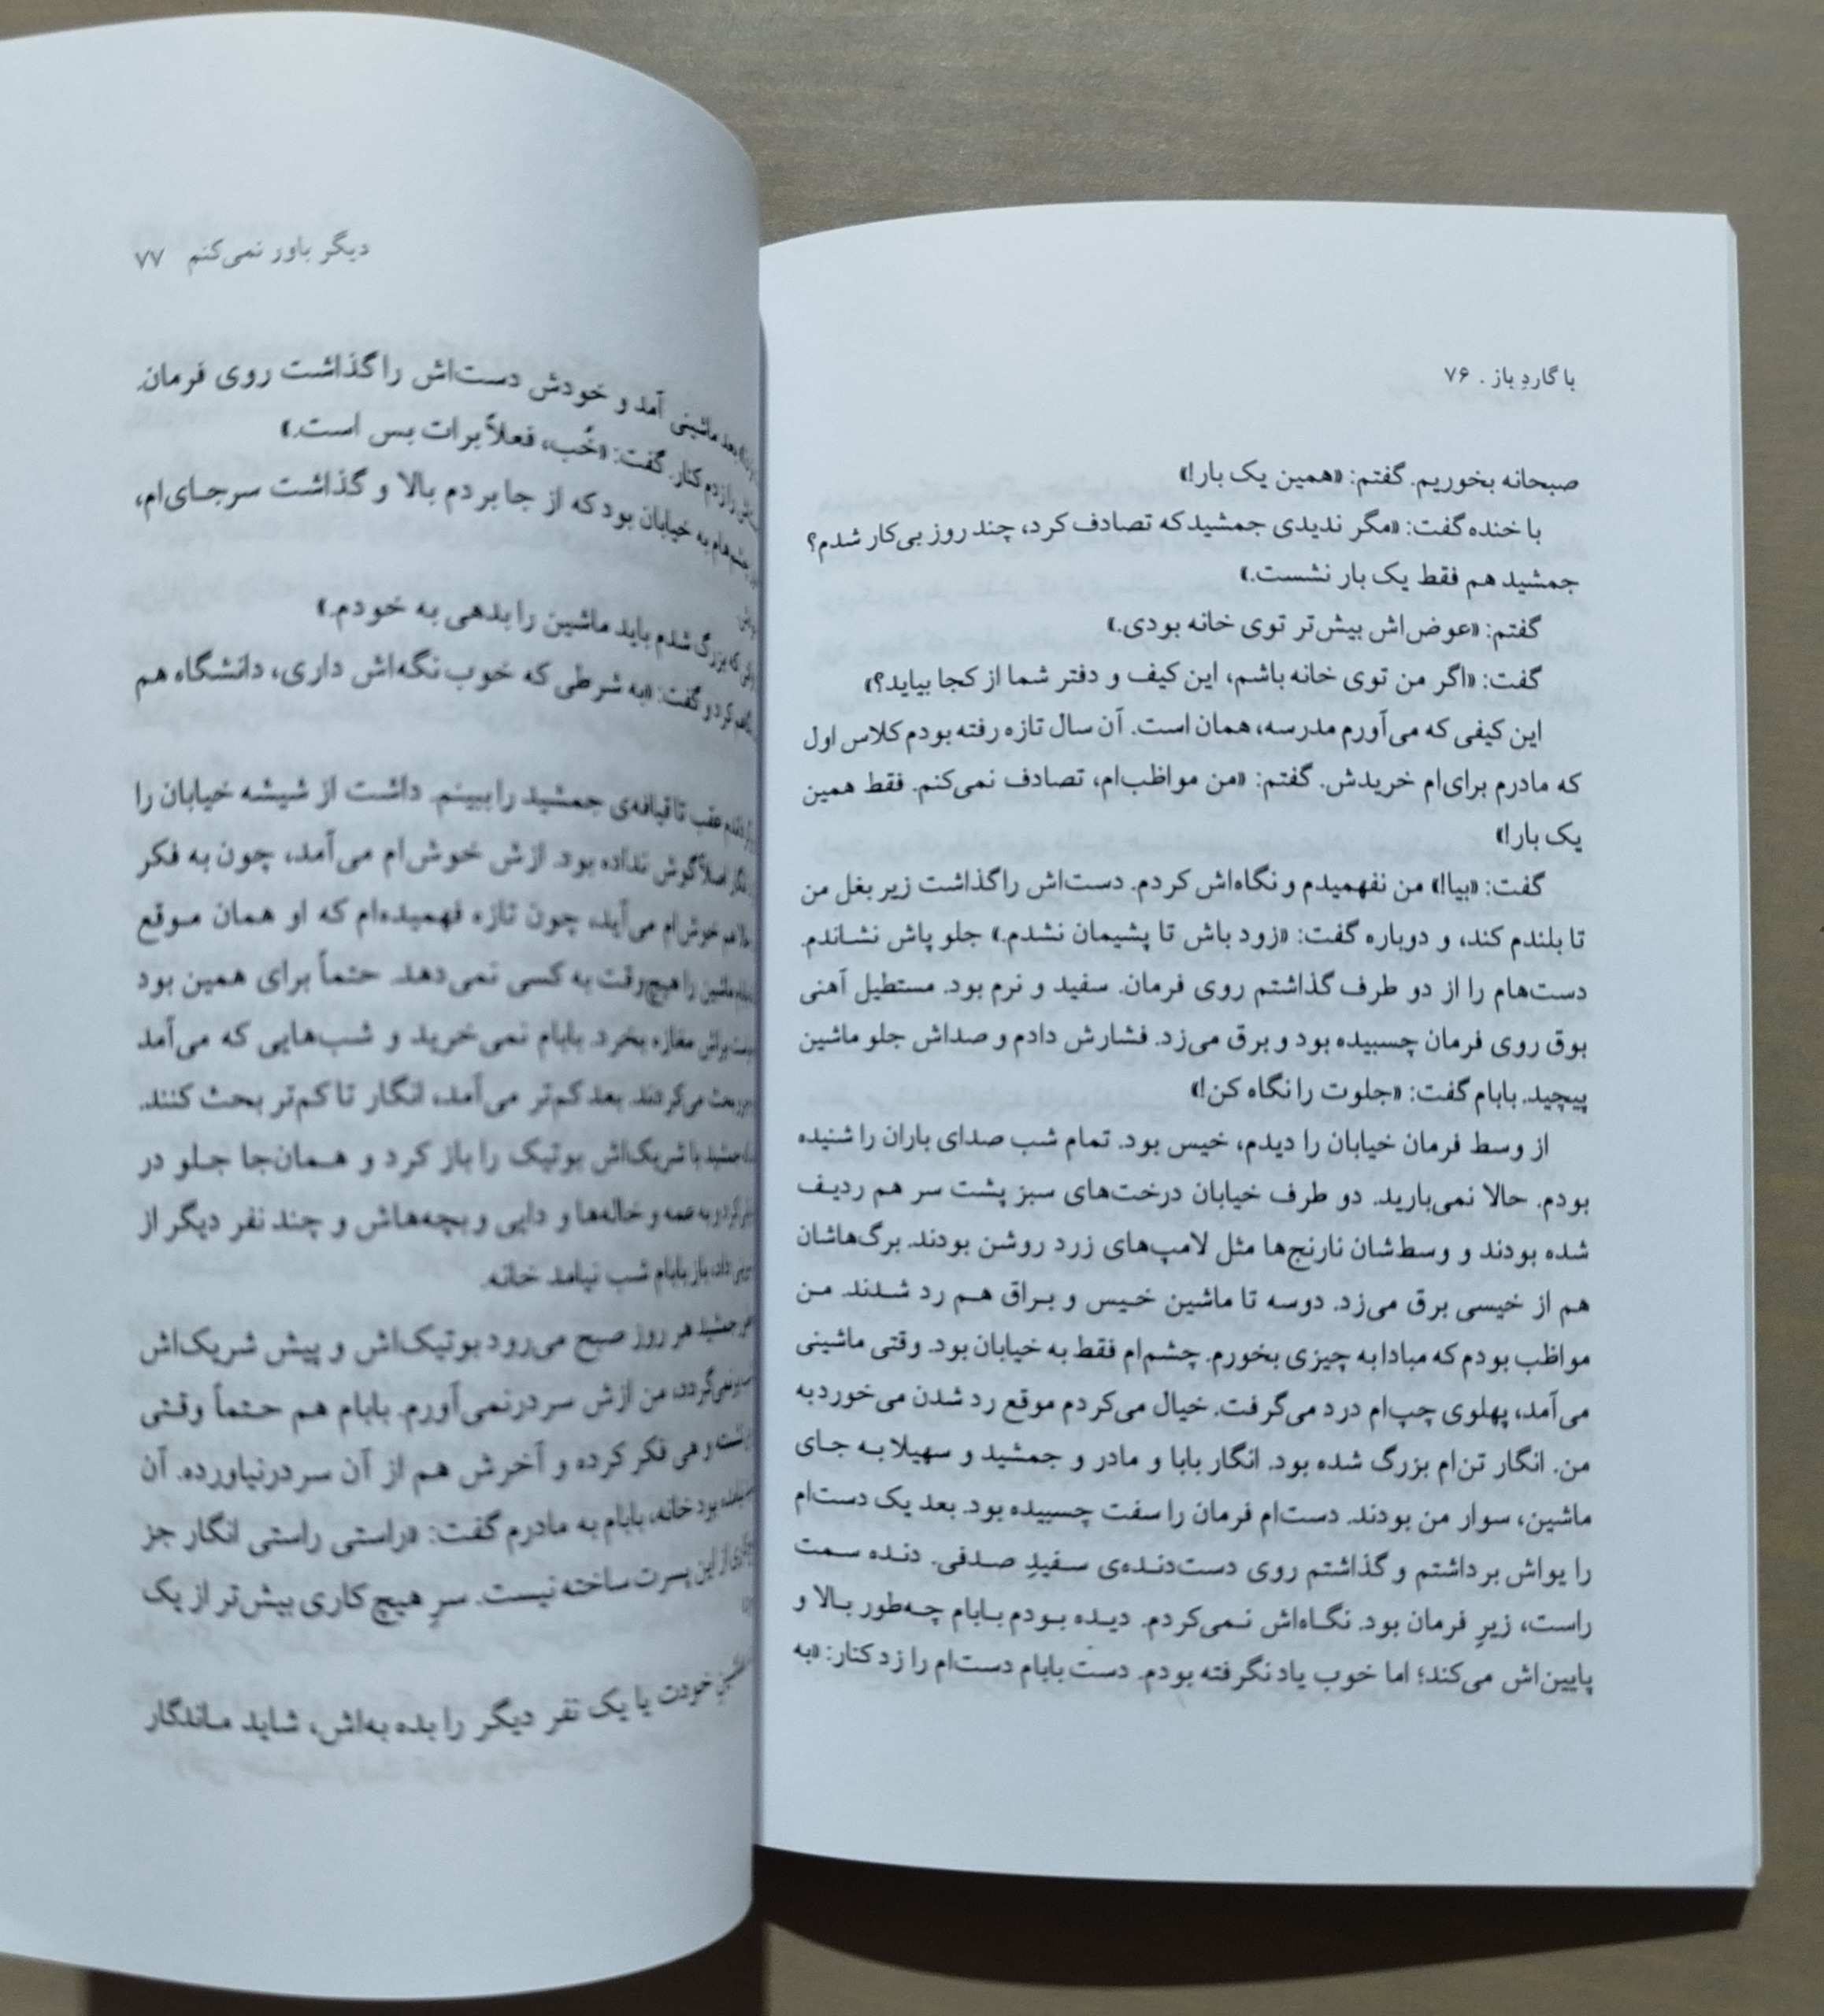 با گاردِ باز . ۷۶
صبحانه بخوریم. گفتم: «همین یک بار!»
با خنده گفت: «مگر ندیدی جمشید که تصادف کرد، چند روز بی‌کار شدم؟
جمشید هم فقط یک بار نشست.»
گفتم: «عوض‌اش بیش‌تر توی خانه بودی.»
گفت: «اگر من توی خانه باشم، این کیف و دفتر شما از کجا بیاید؟»
این کیفی که می‌آورم مدرسه، همان است. آن سال تازه رفته بودم کلاس اول
که مادرم برای‌ام خریدش. گفتم: «من مواظب‌ام، تصادف نمی‌کنم. فقط همین
یک بار!»
گفت: «بیا!» من نفهمیدم و نگاه‌اش کردم. دست‌اش را گذاشت زیر بغل من
تا بلندم کند، و دوباره گفت: «زود باش تا پشیمان نشدم.» جلو پاش نشاندم.
دست‌هام را از دو طرف گذاشتم روی فرمان. سفید و نرم بود. مستطیل آهنی
بوق روی فرمان چسبیده بود و برق می‌زد. فشارش دادم و صداش جلو ماشین
پیچید. بابام گفت: «جلوت را نگاه کن!»
از وسط فرمان خیابان را دیدم، خیس بود. تمام شب صدای باران را شنیده
بودم. حالا نمی‌بارید. دو طرف خیابان درخت‌های سبز پشت سر هم ردیف
شده بودند و وسط‌شان نارنج‌ها مثل لامپ‌های زرد روشن بودند. برگ‌هاشان
هم از خیسی برق می‌زد. دوسه تا ماشین خیس و براق هم رد شدند. من
مواظب بودم که مبادا به چیزی بخورم. چشم‌ام فقط به خیابان بود. وقتی ماشینی
می‌آمد، پهلوی چپ‌ام درد می‌گرفت. خیال می‌کردم موقع رد شدن می‌خورد به
من. انگار تن‌ام بزرگ شده بود. انگار بابا و مادر و جمشید و سهیلا به جای
ماشین، سوار من بودند. دست‌ام فرمان را سفت چسبیده بود. بعد یک دست‌ام
را یواش برداشتم و گذاشتم روی دست‌دنده‌ی سفیدِ صدفی. دنده سمت
راست، زیرِ فرمان بود. نگاه‌اش نمی‌کردم. دیده بودم بابام چه‌طور بالا و
پایین‌اش می‌کند؛ اما خوب یاد نگرفته بودم. دست بابام دست‌ام را زد کنار: «به
دیگر باور نمی‌کنم ۷۷
بعد ماشینی آمد و خودش دست‌اش را گذاشت روی فرمان.
را زدم کنار. گفت: «خُب، فعلاً برات بس است.»
چشم‌هام به خیابان بود که از جا بردم بالا و گذاشت سرجای‌ام،
که بزرگ شدم باید ماشین را بدهی به خودم.»
کرد و گفت: «به شرطی که خوب نگه‌اش داری، دانشگاه هم
عقب تا قیافه‌ی جمشید را ببینم. داشت از شیشه خیابان را
اصلاً گوش نداده بود. ازش خوش‌ام می‌آمد، چون به فکر
هم خوش‌ام می‌آید، چون تازه فهمیده‌ام که او همان موقع
ماشین را هیچ‌وقت به کسی نمی‌دهد. حتماً برای همین بود
براش مغازه بخرد. بابام نمی‌خرید و شب‌هایی که می‌آمد
بحث می‌کردند. بعد کم‌تر می‌آمد، انگار تا کم‌تر بحث کنند.
جمشید با شریک‌اش بوتیک را باز کرد و همان‌جا جلو در
کرد و به عمه و خاله‌ها و دایی و بچه‌هاش و چند نفر دیگر از
داد، باز بابام شب نیامد خانه.
جمشید هر روز صبح می‌رود بوتیک‌اش و پیش شریک‌اش
برنمی‌گردد، من ازش سردرنمی‌آورم. بابام هم حتماً وقتی
و هی فکر کرده و آخرش هم از آن سردرنیاورده. آن
بود خانه، بابام به مادرم گفت: «راستی راستی انگار جز
از این پسرت ساخته نیست. سرِ هیچ کاری بیش‌تر از یک
خودت یا یک نفر دیگر را بده به‌اش، شاید ماندگار